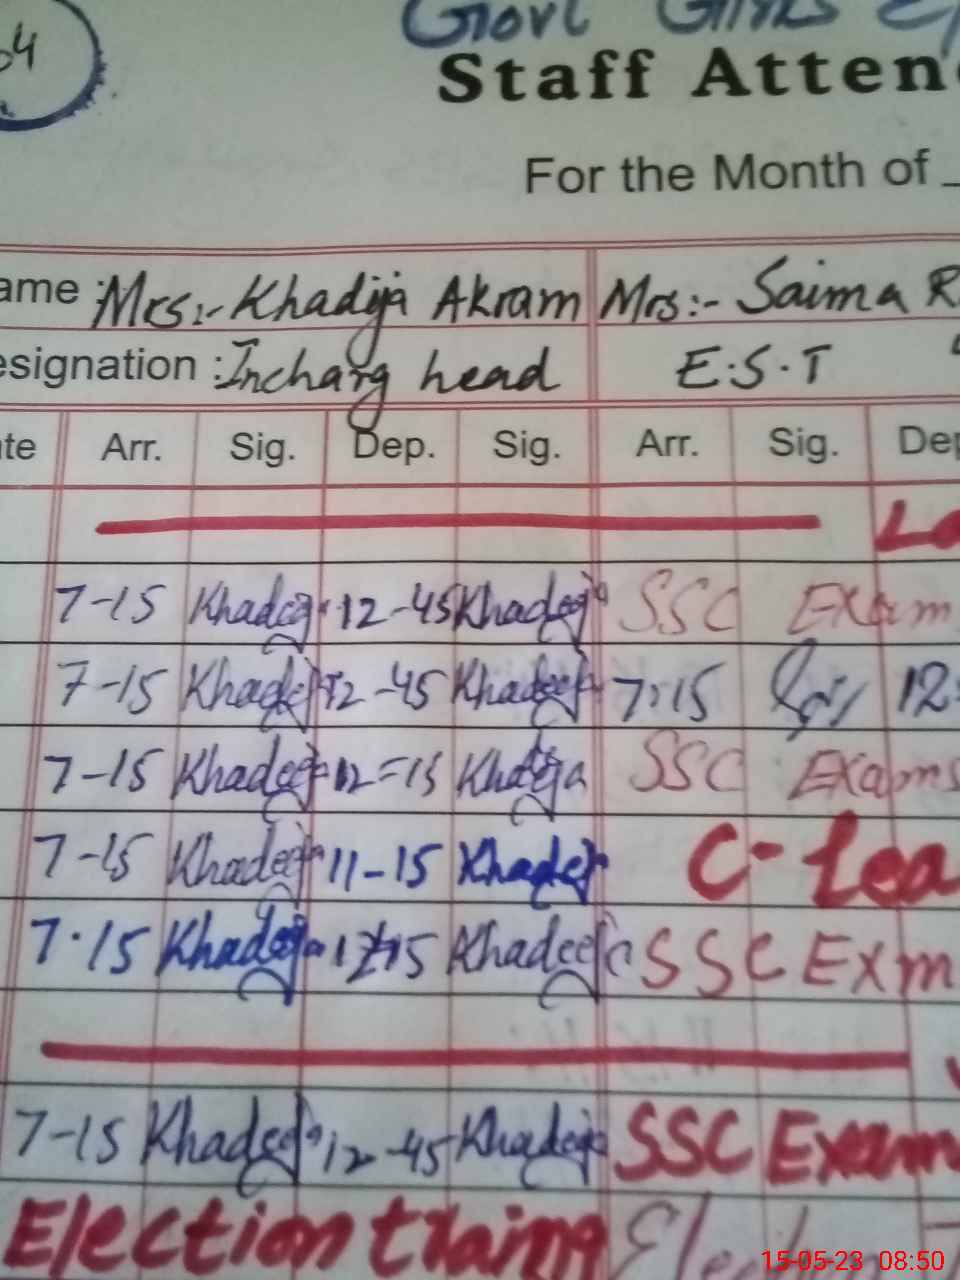 04
Govt Girls
Staff Atten
For the Month of
ame : Mrs:- Khadija Akram Mrs:- Saima R
esignation : Incharg head E.S.T
te Arr. Sig. Dep. Sig. Arr. Sig. Dep
7-15 Khadeeja 12-45 Khadeeja SSC Exam
7-15 Khadeeja 12-45 Khadeeja 7:15 12:
7-15 Khadeeja 12=15 Khadija SSC Exams
7-15 Khadeeja 11-15 Khadeeja C-Lea
7.15 Khadeeja 12-15 Khadeeja SSC Exm
7-15 Khadeeja 12-45 Khadeeja SSC Exam
Election traing
15-05-23 08:50